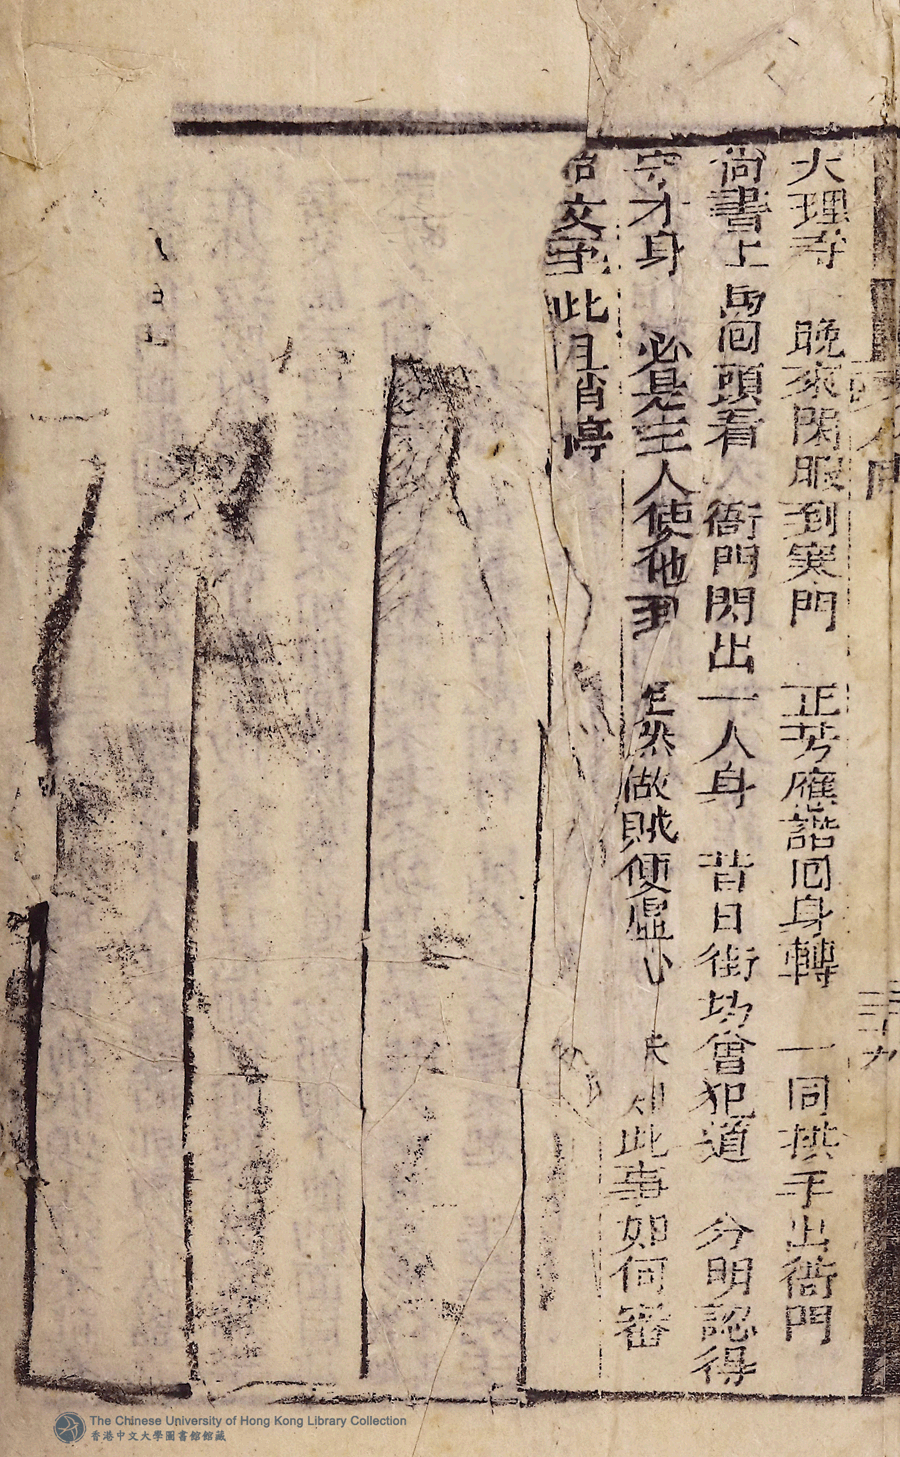 大理寺 晚來閑暇到寒門 正芳應諾回身轉 一同拱手出衙門
尚書上馬回頭看 衙門閃出一人身 昔日街坊曾犯道 分明認得
守才身 必是主人使他到 怎然做賊便虛心 未知此事如何審
文 此且消停
三十九
The Chinese University of Hong Kong Library Collection
香港中文大學圖書館館藏